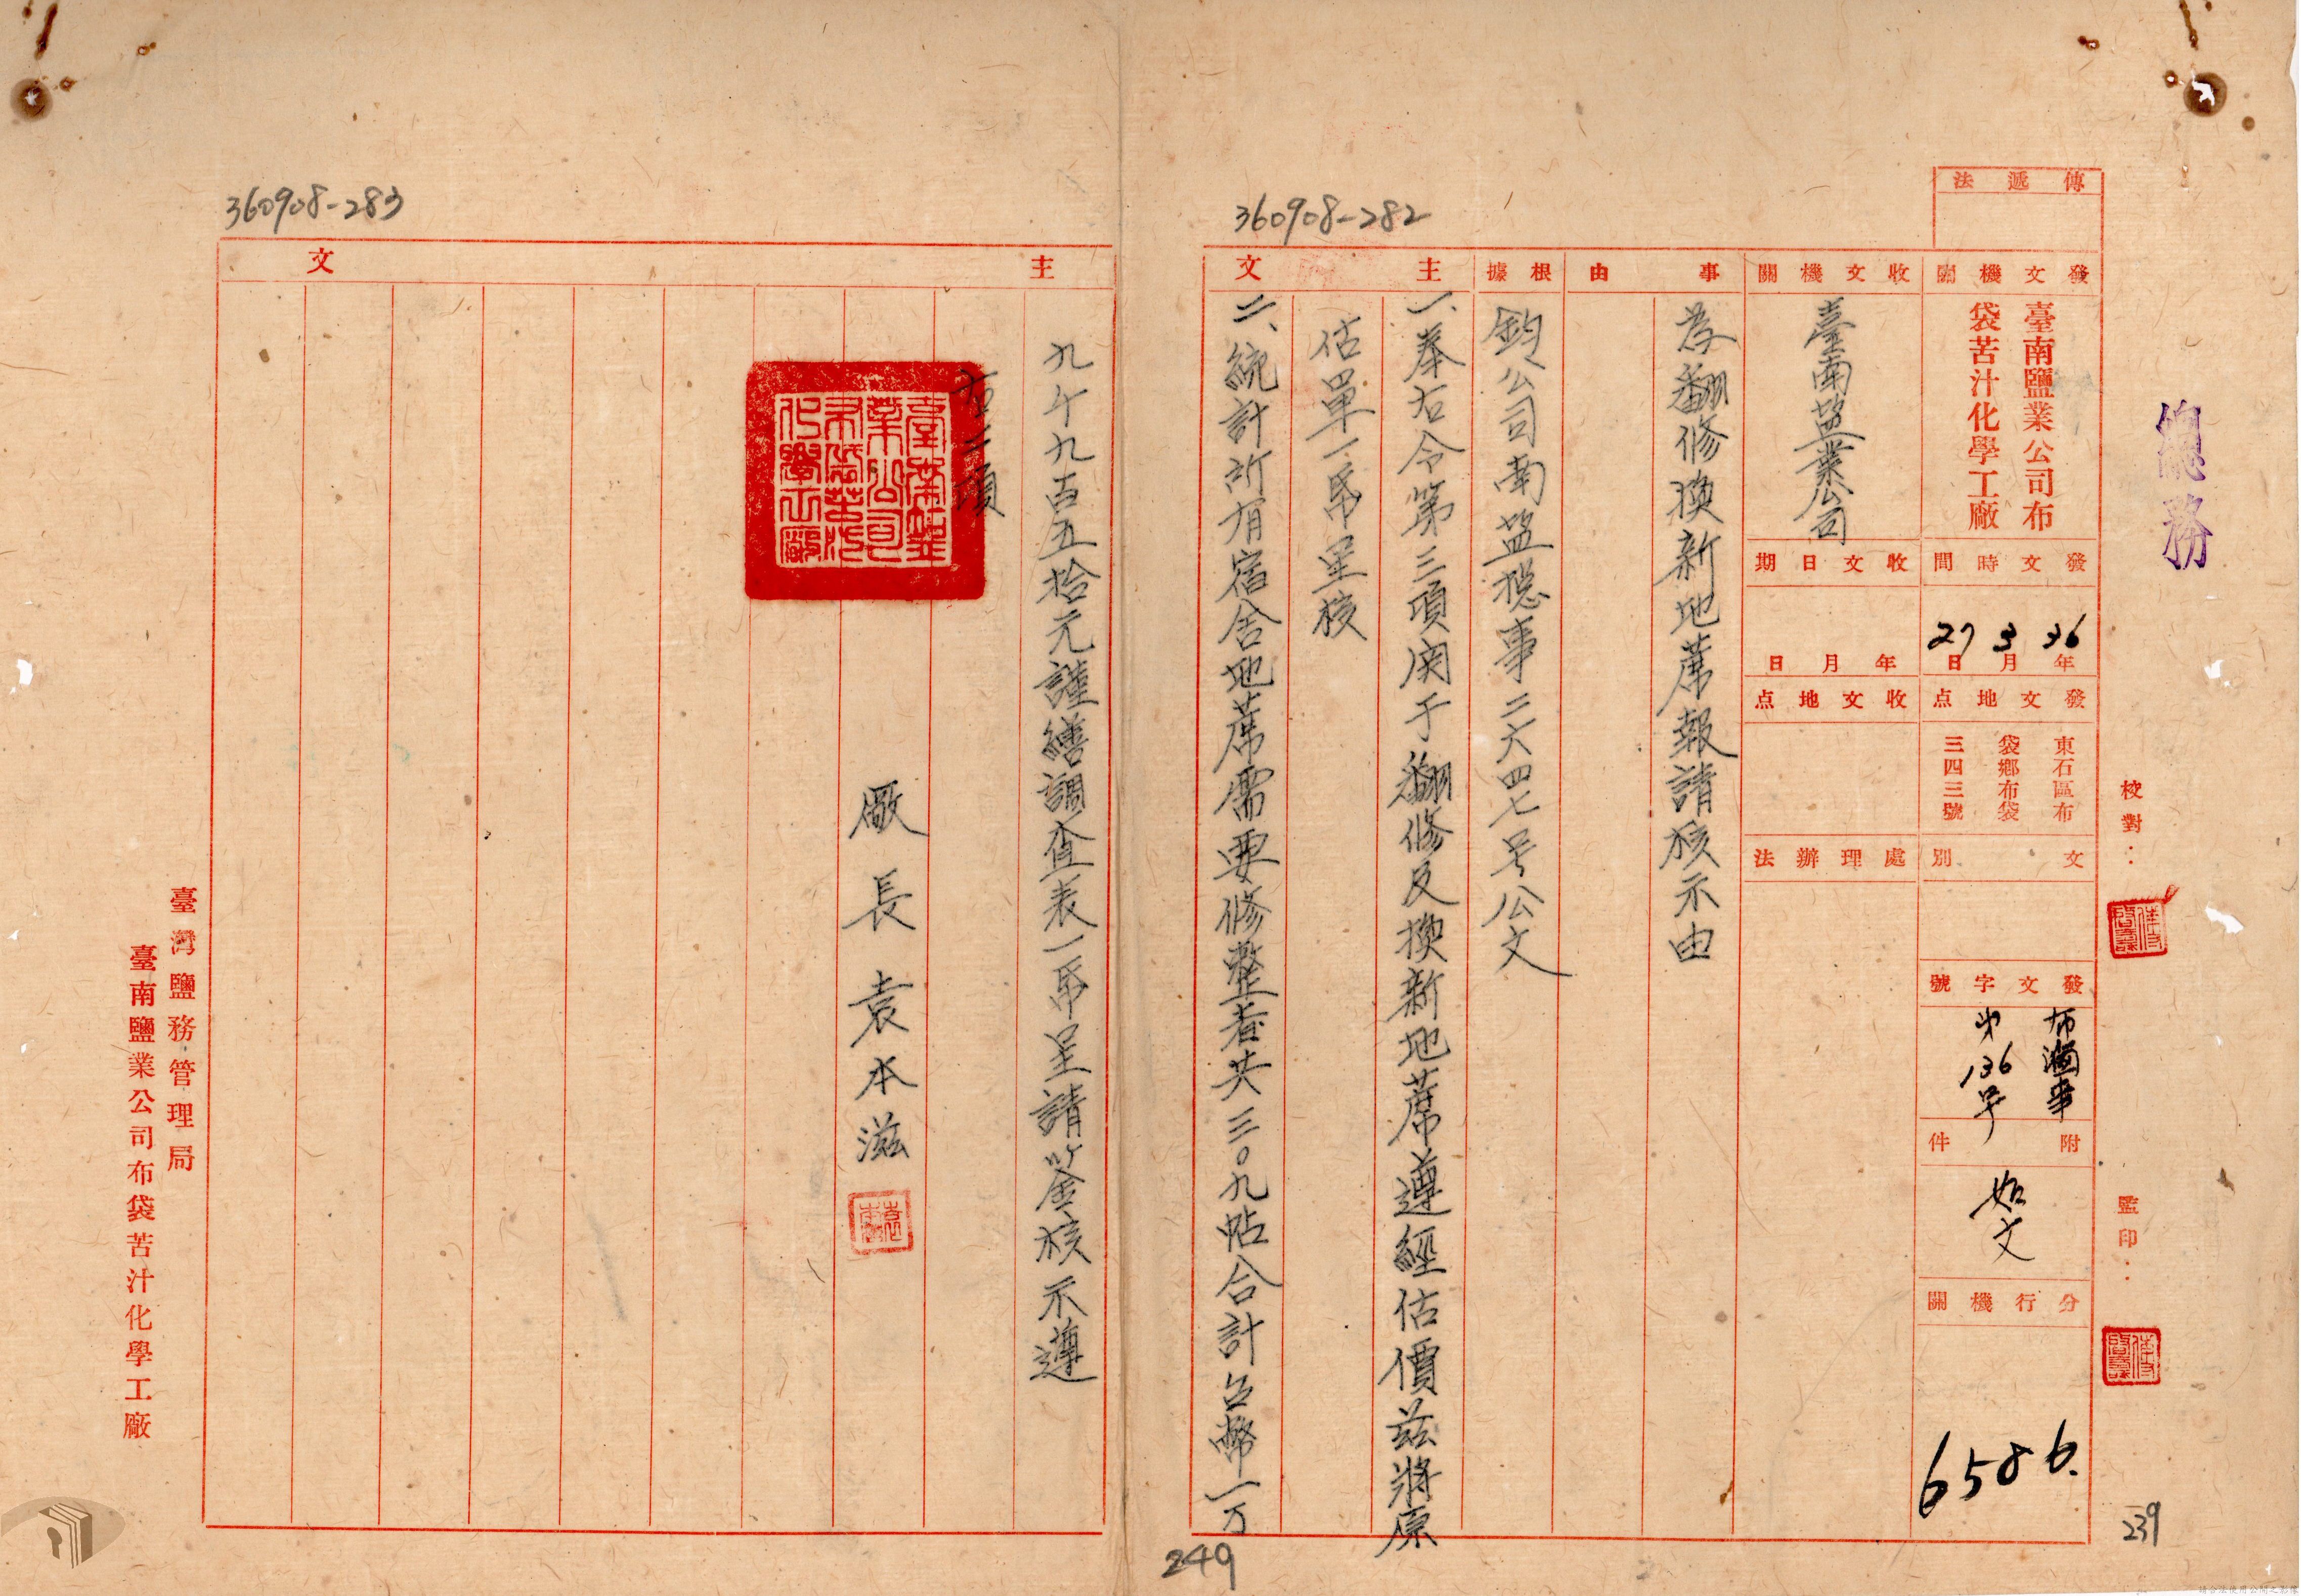 總務
校對：
監印：
傳遞法
發文機關
臺南鹽業公司布
袋苦汁化學工廠
發文時間
36年3月27日
發文地点
東石區布
袋鄉布袋
三四三號
文別
發文字號
布滷事
第136号
附件
如文
分行機關
6586.
收文機關
臺南盐業公司
收文日期
年月日
收文地点
處理辦法
事由
為翻修換新地蓆報請核示由
根據
鈞公司南盐總事二六四七号公文
主文
一、奉右令第三項関于翻修及換新地蓆遵經估價茲將原
估單一帋呈核
二、統計所有宿舍地蓆需要修整者共三〇九帖合計台幣一万
360908-282
239
249
360908-283
主文
九千九百五拾元謹繕調查表一帋呈請鉴核示遵
右二項
臺南鹽業公司布袋苦汁化學工廠
廠長袁本滋
臺灣鹽務管理局
臺南鹽業公司布袋苦汁化學工廠